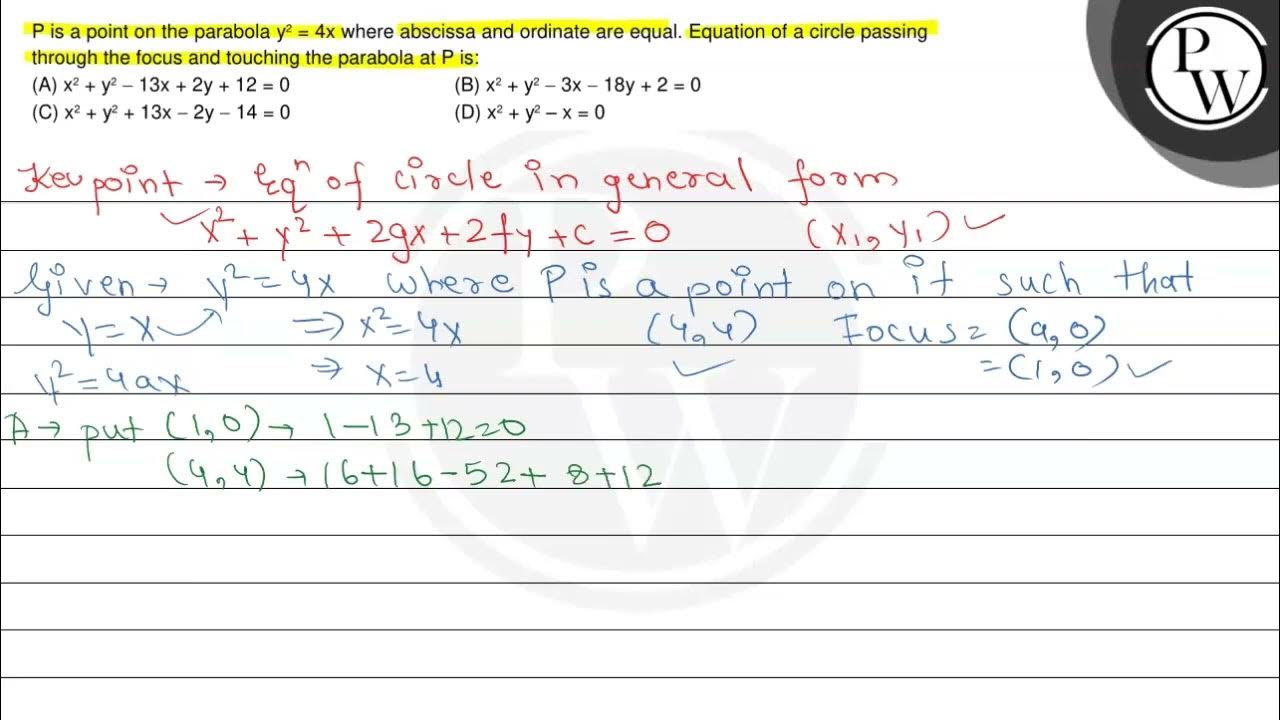 P is a point on the parabola y² = 4x where abscissa and ordinate are equal. Equation of a circle passing
through the focus and touching the parabola at P is:
(A) x² + y² – 13x + 2y + 12 = 0 (B) x² + y² – 3x – 18y + 2 = 0
(C) x² + y² + 13x – 2y – 14 = 0 (D) x² + y² – x = 0
P
W
Key point → Eqⁿ of circle in general form
✓ x² + y² + 2gx + 2fy + c = 0 (x₁, y₁) ✓
Given → y² = 4x where P is a point on it such that
y = x ⇒ x² = 4x (4,4) Focus = (a,0)
y² = 4ax ⇒ x = 4 ✓ = (1,0) ✓
A → put (1,0) → 1 – 13 + 12 = 0
(4,4) → 16 + 16 – 52 + 8 + 12